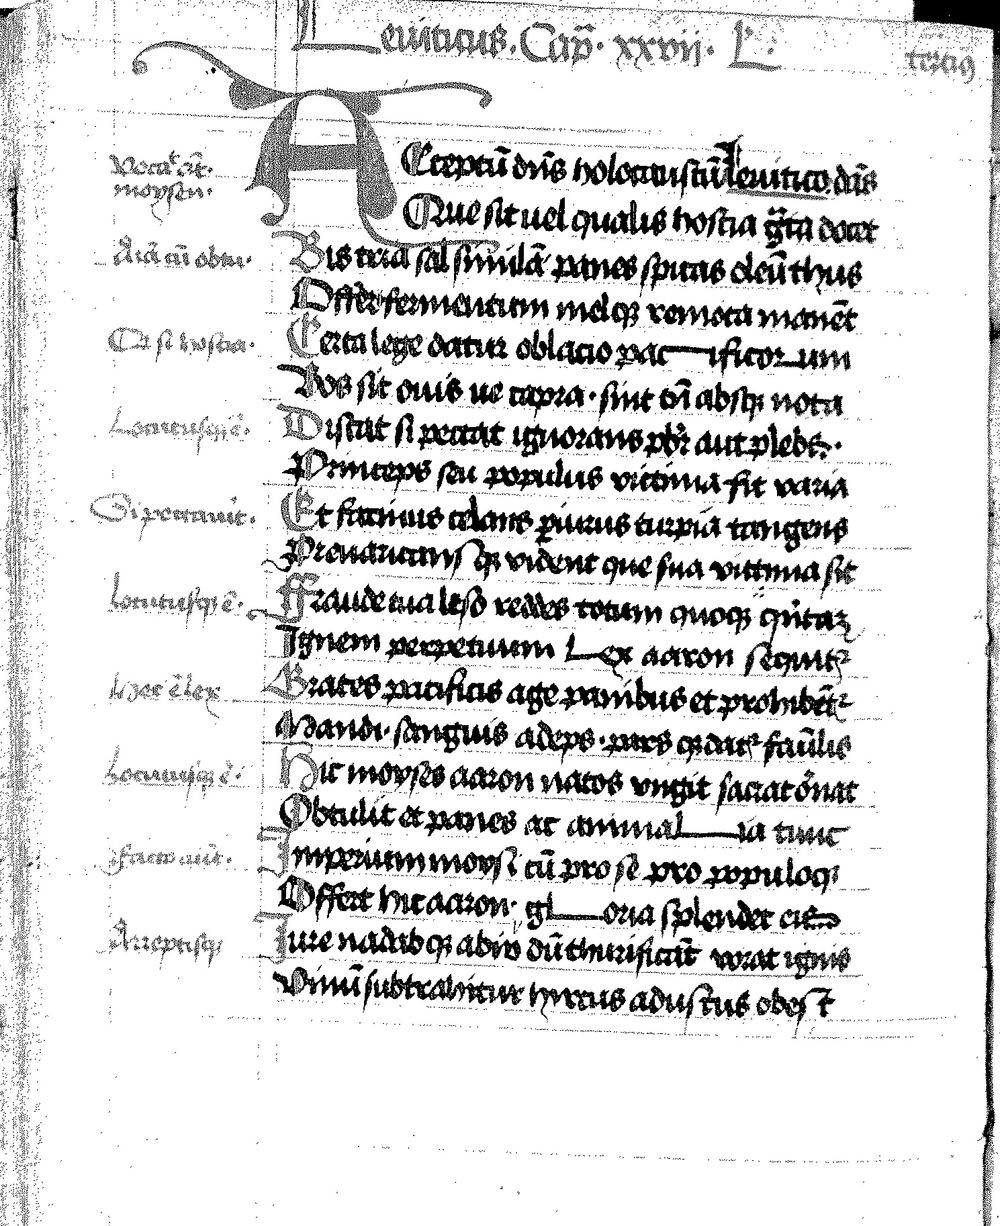 Leuiticus. Cap̄. xxvij. L.
terciꝯ
Vocāt aūt. moysen.
Acceptū dn̄s holocaustū leuitico dās
Que sit uel qualis hostia gͣta docet
Aīā cū obtu.
Bis tria sal similā panes spicas oleū thus
Offer fermentum melqꝫ remota manēt
Qᷓ si hostia.
Certa lege datur oblacio pacificorum
Bos sit ouis ue capra. sint tn̄ absqꝫ nota
Locutusqꝫ ē.
Distat si peccat ignorans pbr̄ aut plebs.
Princeps seu populus victima fit varia
Si peccauīt.
Et facinus celans ꝑiurus turpia tangens
Preuaricansqꝫ vident que sua victima sit
Locutusqꝫ ē.
Fraude tua leso reddes totum quoqꝫ qn̄taꝫ
Ignem perpetuum Lex aaron sequitᷣ
Hec ē lex
Grates pacificis age panibus et prohibētᷣ
Mandi. sanguis adeps. pars qꝫ datᷣ faūlis
Locutusqꝫ ē.
Hic moyses aaron natos vngit sacrat ōnat
Obtulit et panes ac animalia tunc
Facto aūt.
Imperium moysi cū pro se pro populoqꝫ
Offert hic aaron. gloria splendet eis
Arreptisqꝫ
Iure nadab qꝫ abiu dū thurificāt vorat ignis
Vinū subtrahitur hyrcus adustus obest